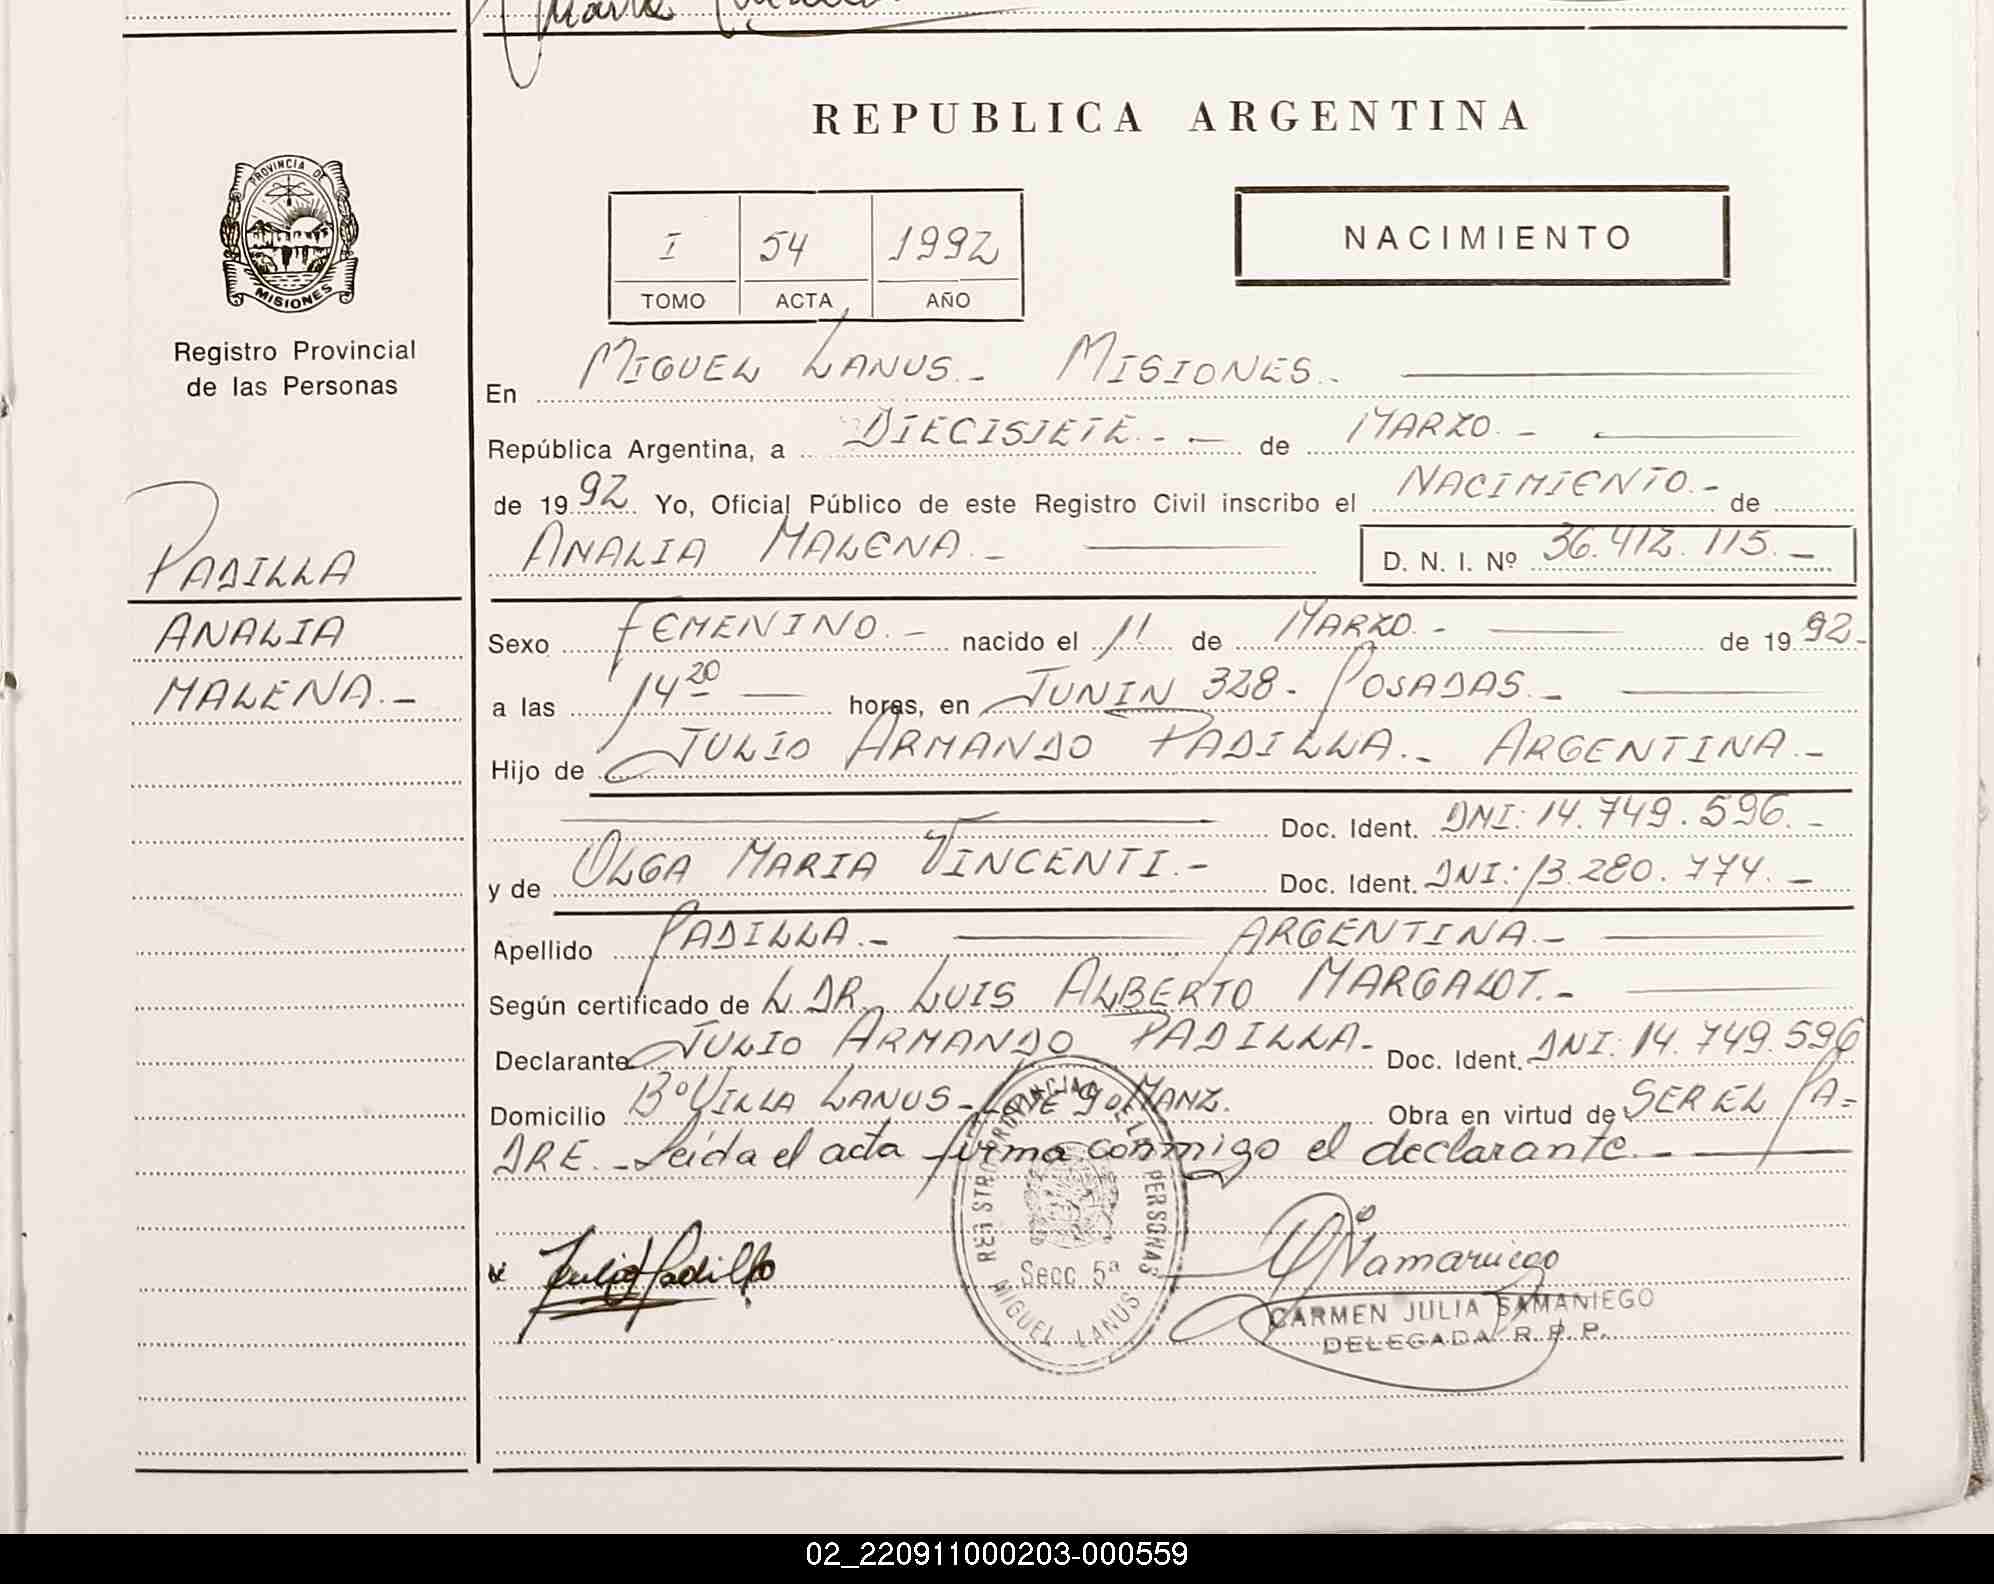 REPUBLICA ARGENTINA
PROVINCIA DE
MISIONES
Registro Provincial
de las Personas
I 54 1992
TOMO ACTA AÑO
NACIMIENTO
En MIGUEL LANUS.- MISIONES.-
República Argentina, a DIECISIETE.- de MARZO.-
de 1992 Yo, Oficial Público de este Registro Civil inscribo el NACIMIENTO.- de
ANALIA MALENA.- D. N. I. Nº 36.412.115.-
PADILLA
ANALIA
MALENA.-
Sexo FEMENINO.- nacido el 11 de MARZO.- de 1992.-
a las 14 20 horas, en JUNIN 328.- POSADAS.-
Hijo de JULIO ARMANDO PADILLA.- ARGENTINA.-
Doc. Ident. DNI: 14.749.596.-
y de OLGA MARIA VINCENTI.- Doc. Ident. DNI: 13.280.774.-
Apellido PADILLA.- ARGENTINA.-
Según certificado de L DR. LUIS ALBERTO MARGALOT.-
Declarante JULIO ARMANDO PADILLA- Doc. Ident. DNI: 14.749.596
Domicilio Bº VILLA LANUS- LOTE 9 MANZ. Obra en virtud de SER EL PA=
DRE.- Leída el acta firma conmigo el declarante.-
REGISTRO PROVINCIAL DE LAS PERSONAS
Secc. 5ª
MIGUEL LANUS
Julio Padilla
CJSamaniego
CARMEN JULIA SAMANIEGO
DELEGADA R. P. P.
02_220911000203-000559